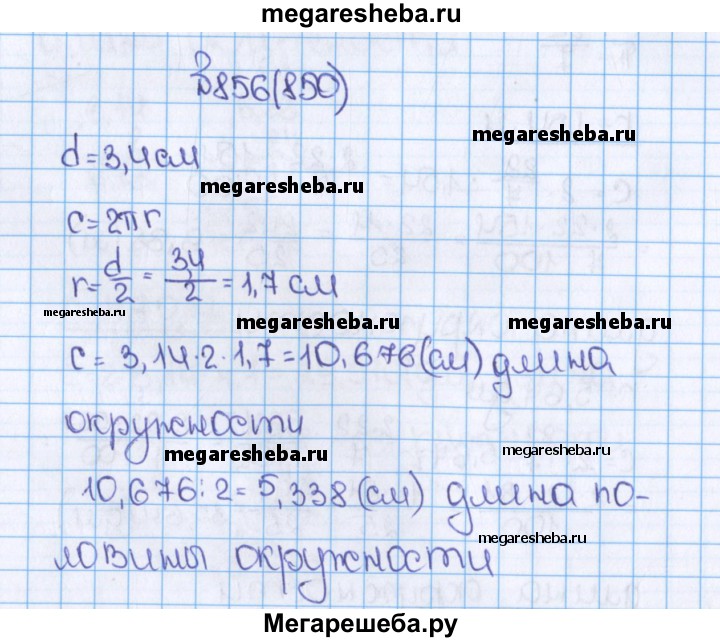 megaresheba.ru
№856(850)
megaresheba.ru
d=3,4см
megaresheba.ru
c=2πr
r=d/2=3,4/2=1,7 см
megaresheba.ru
megaresheba.ru
megaresheba.ru
c= 3,14·2·1,7=10,676(см) длина
окружности
megaresheba.ru
megaresheba.ru
10,676:2=5,338(см) длина по-
megaresheba.ru
ловины окружности
megaresheba.ru
Мегарешеба.ру